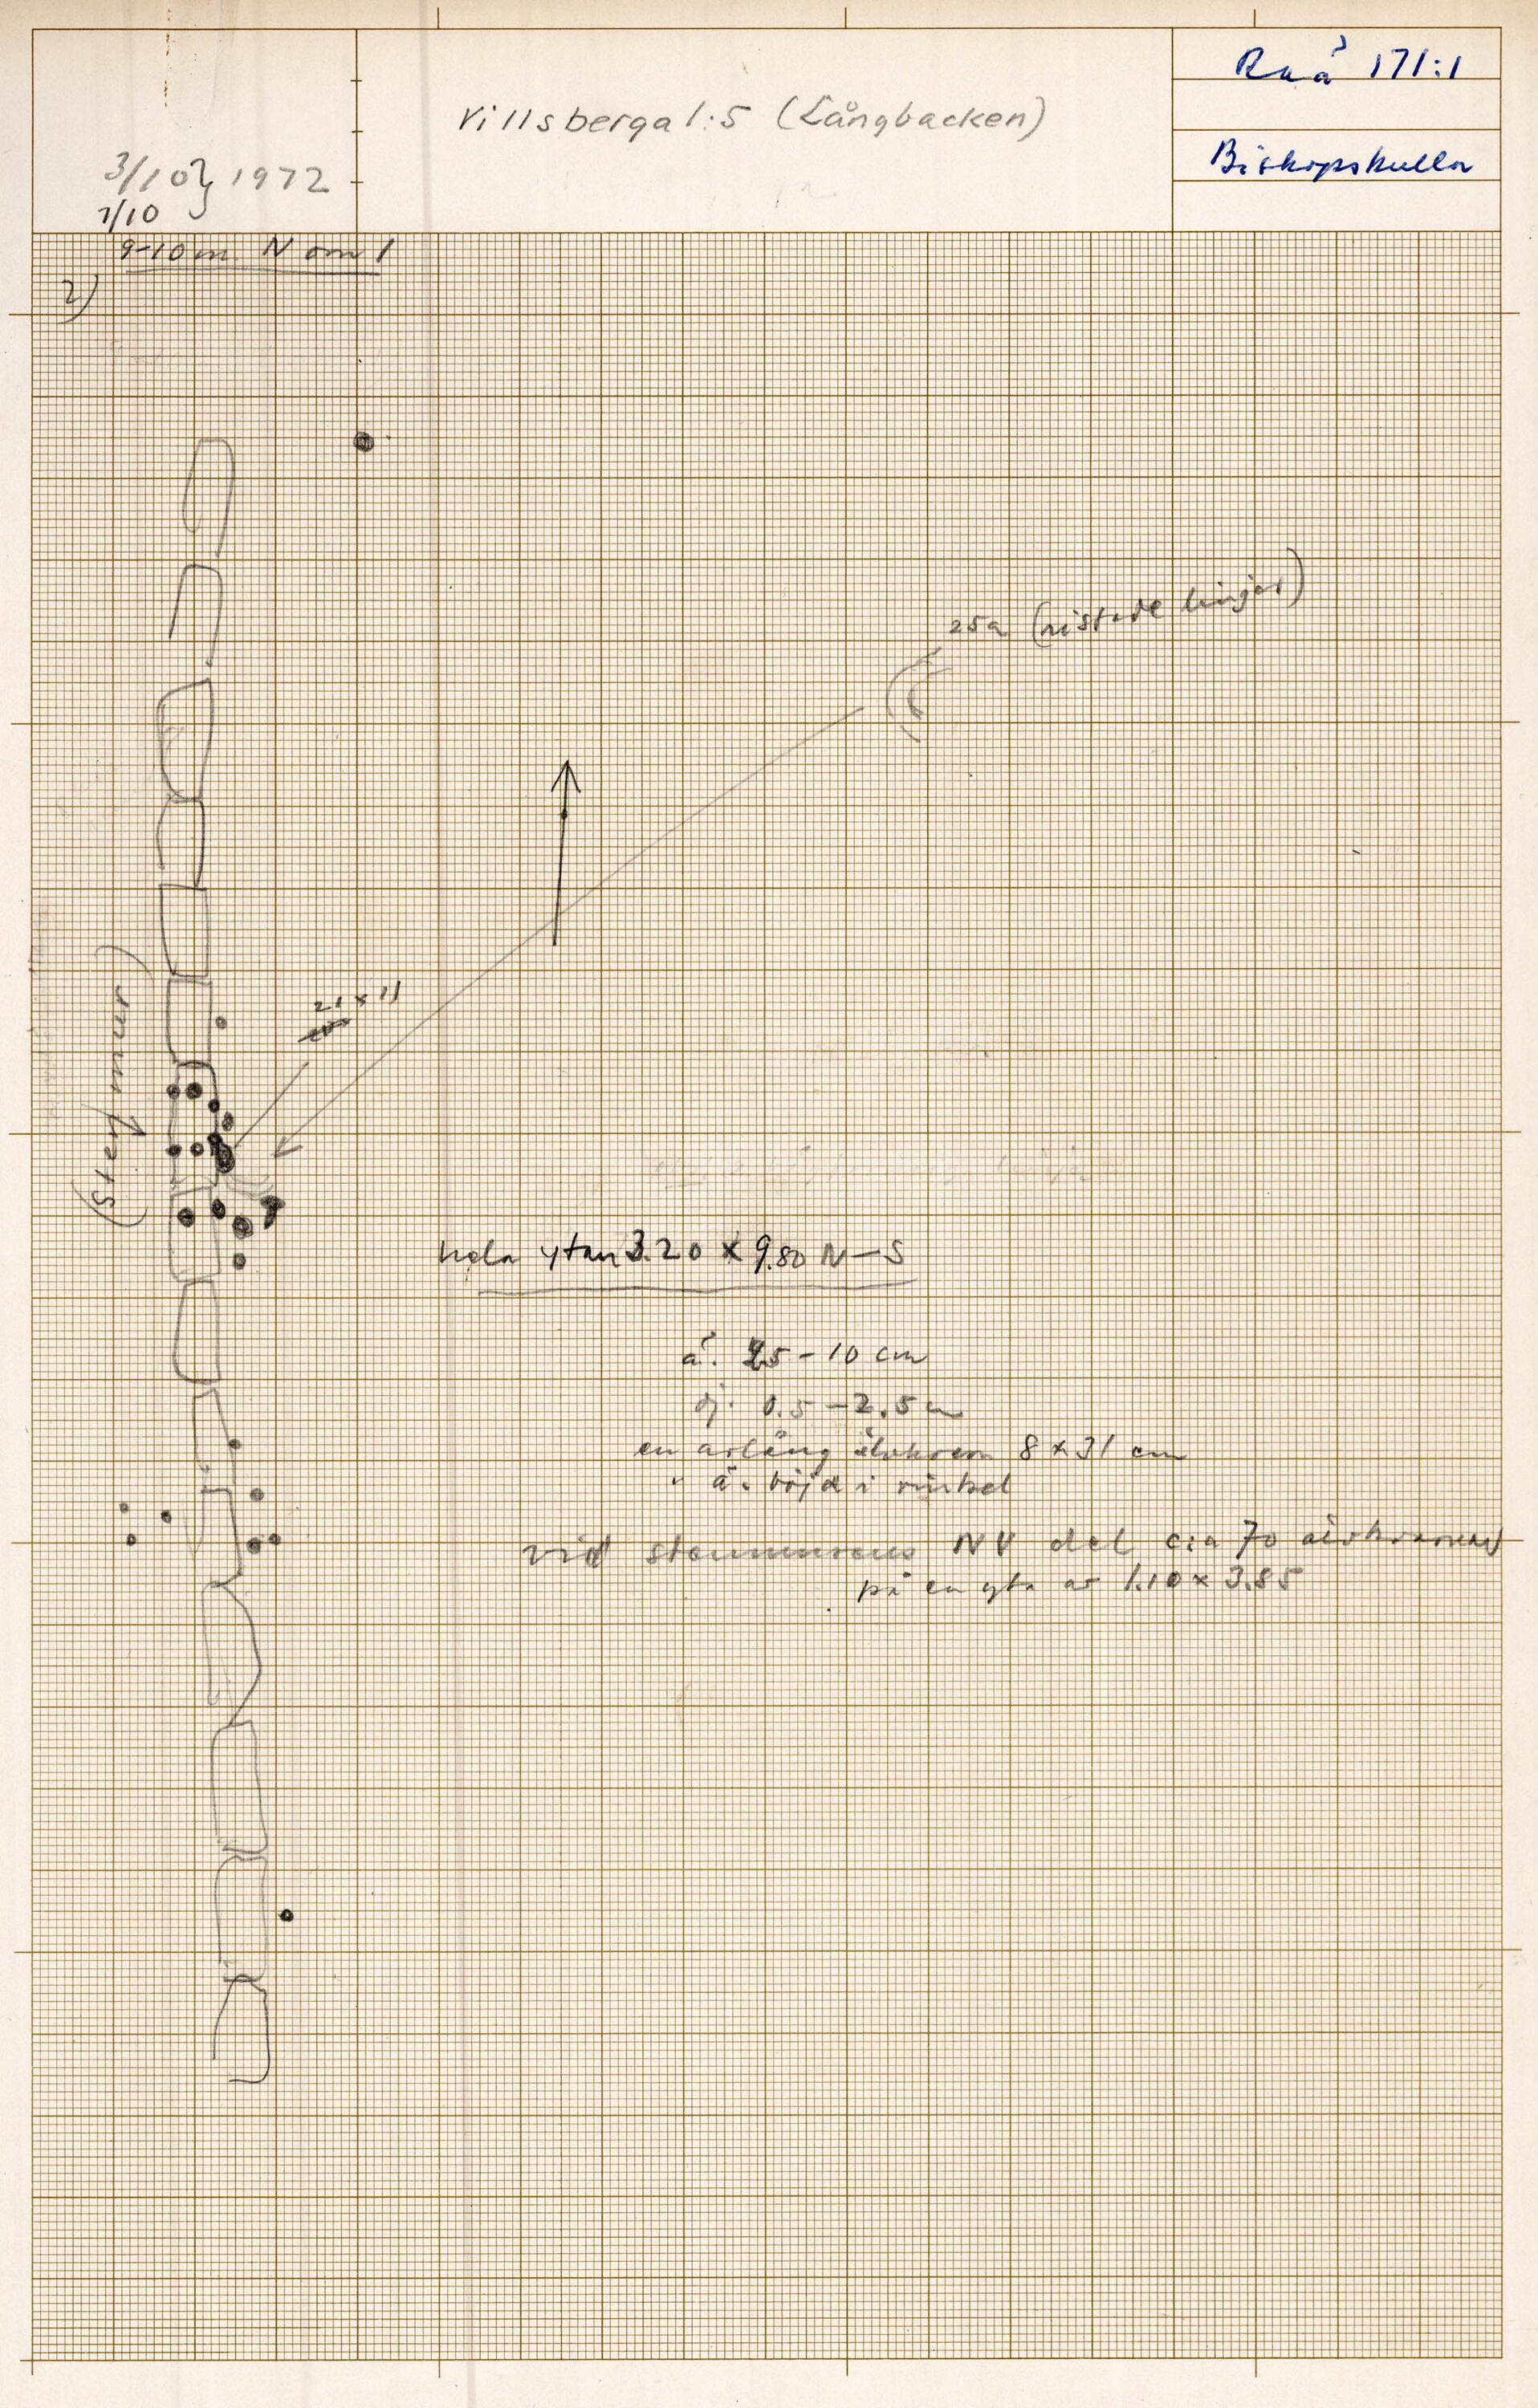 Raä 171:1
Villsberga 1:5 (Långbacken)
Biskopskulla
3/10 } 1972
7/10
9-10 m. N om 1
2)
25a (ristade linjer)
21 x 11
(Stenmur)
hela ytan 3.20 x 9.80 N-S
ä. 25-10 cm
dj. 0.5-2.5 cm
en avlång älvkvarn 8 x 31 cm
" ä. böjd i vinkel
vid stenmurens NV del c:a 70 älvkvarnar
på en yta av 1.10 x 3.85